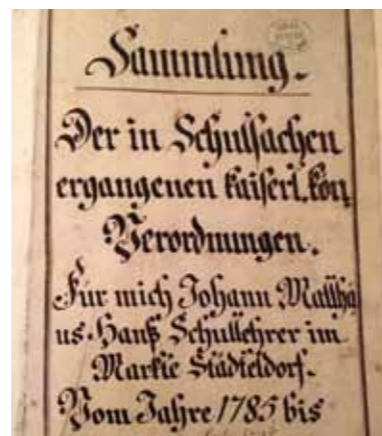 Sammlung.
Der in Schulsachen
ergangenen kaiserl. kön.
Verordnungen.
Für mich Johann Matthä
us Hanß Schullehrer im
Markte Städteldorf.
Vom Jahre 1785 bis